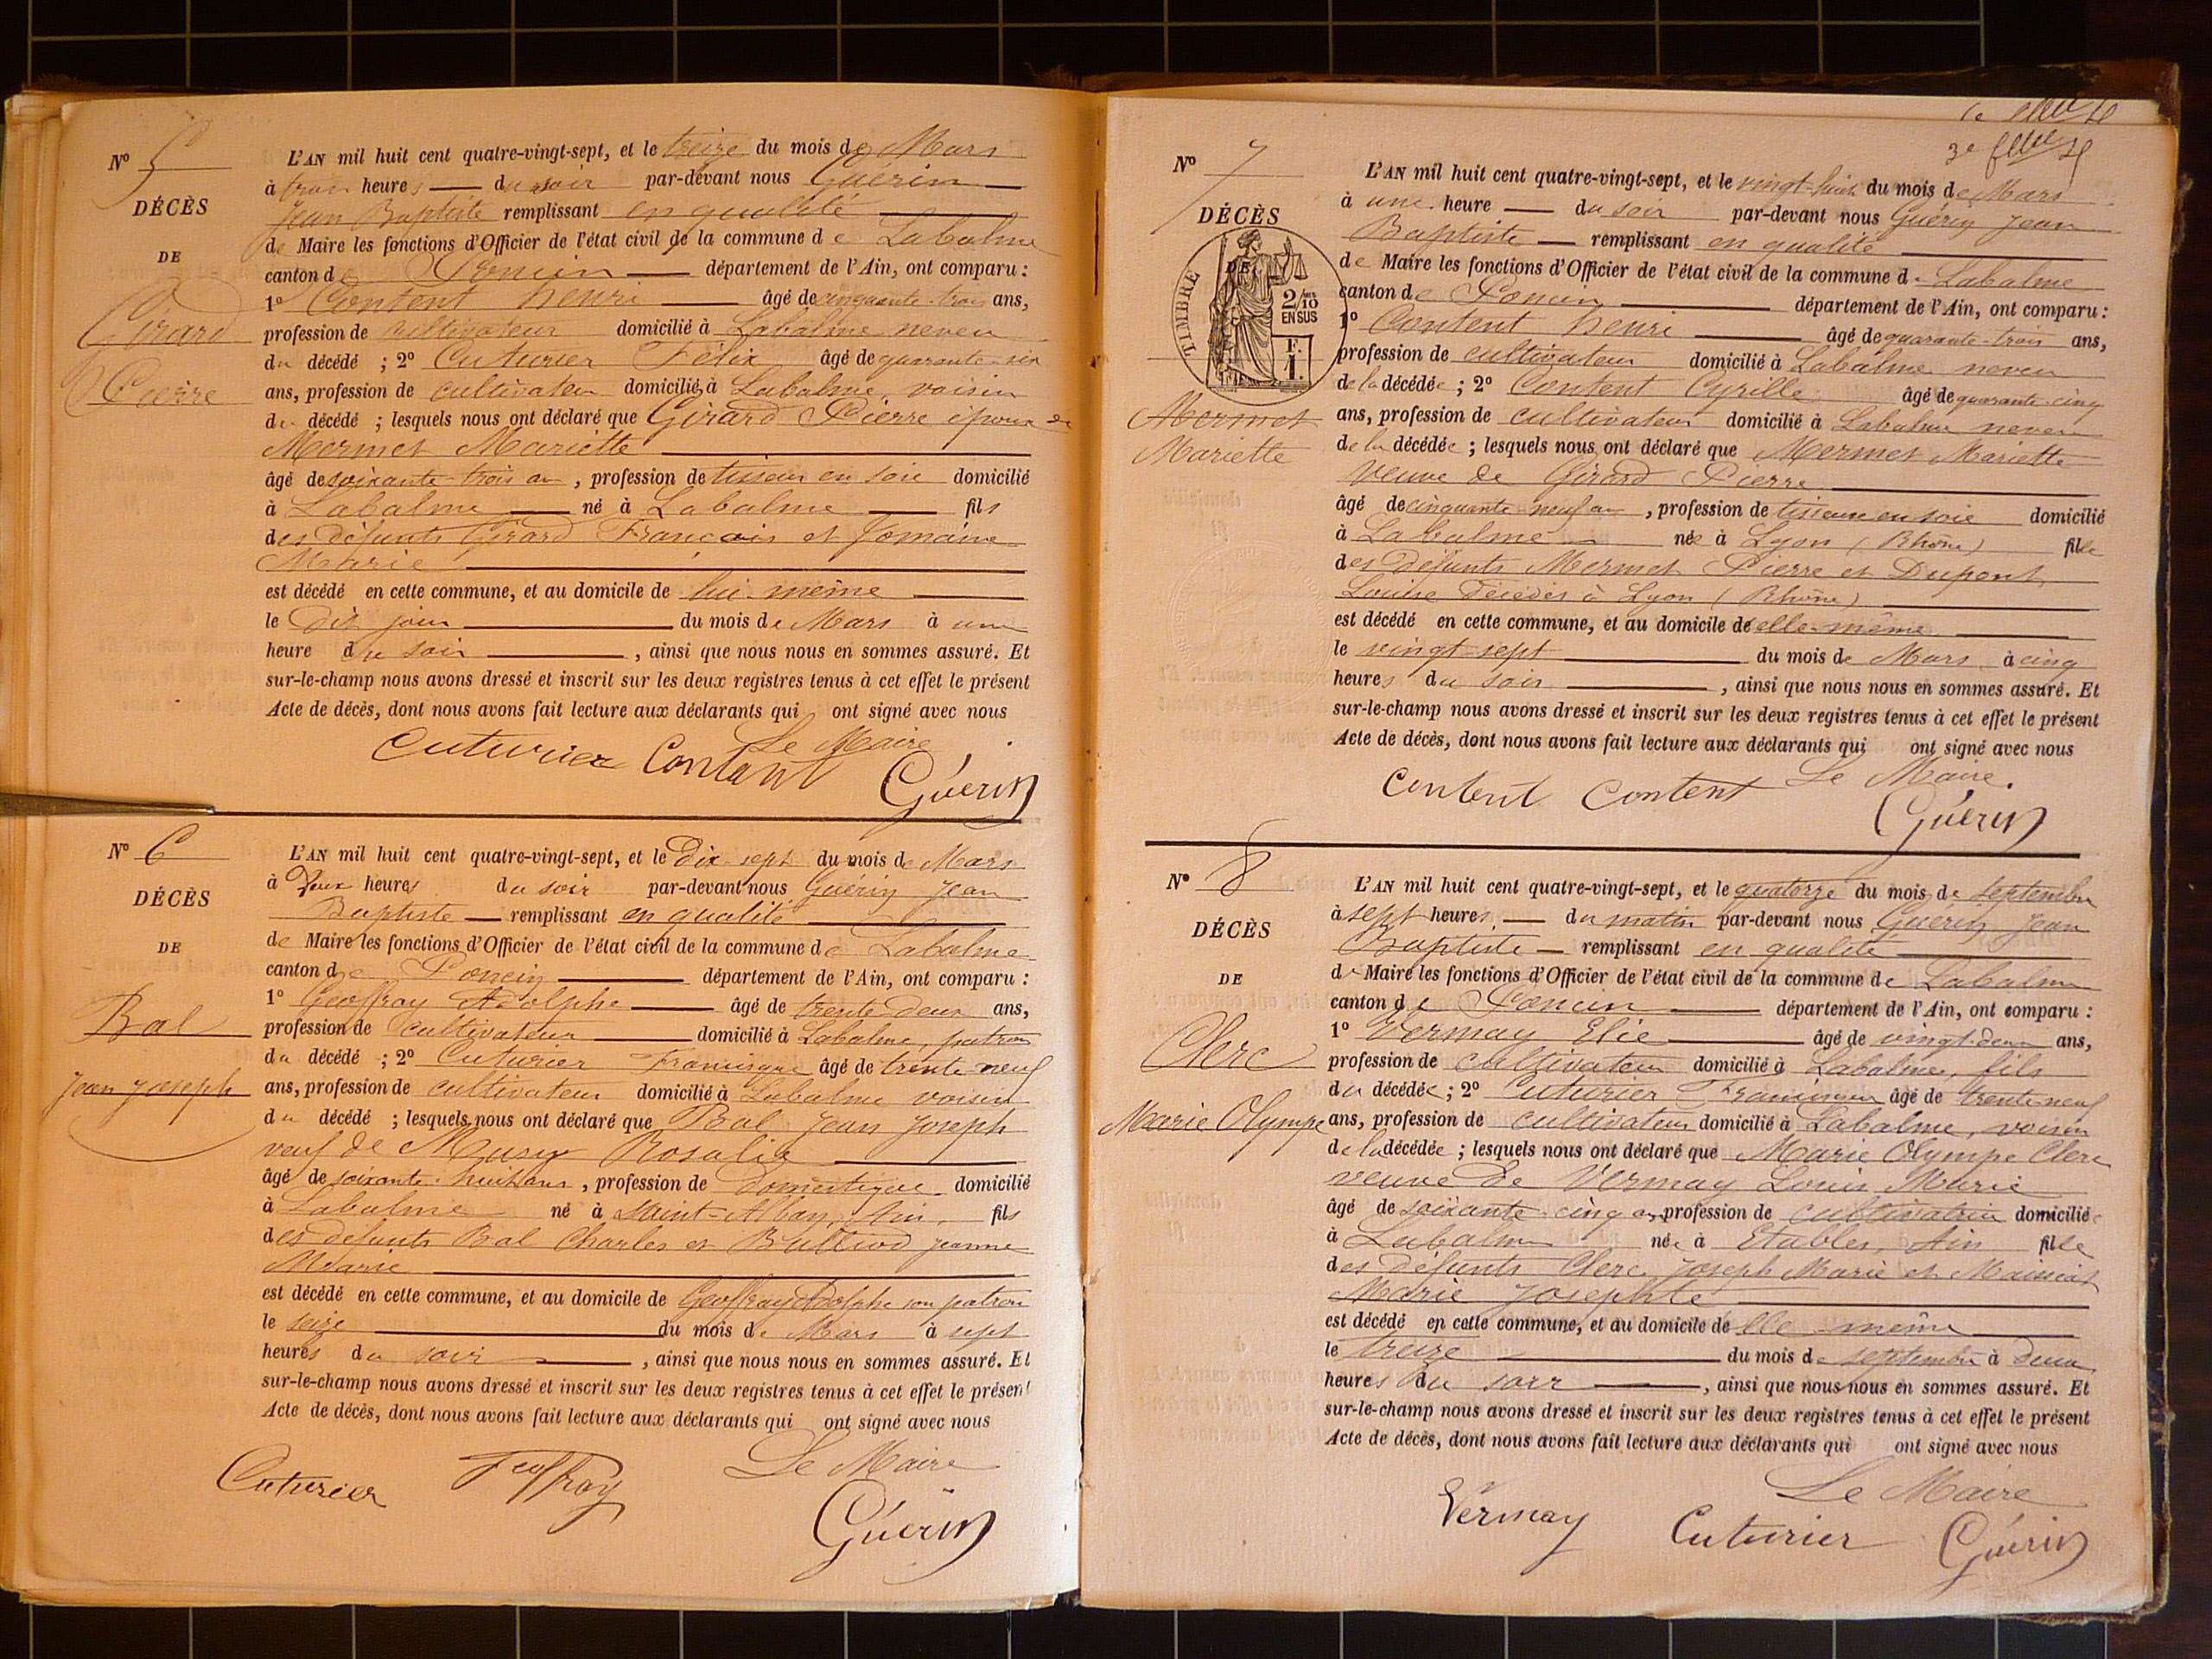 N° 5
DÉCÈS
DE
Girard
Pierre
L'AN mil huit cent quatre-vingt-sept, et le treize du mois de Mars
à trois heures du soir par-devant nous Guérin
Jean Baptiste remplissant en qualité
de Maire les fonctions d'Officier de l'état civil de la commune de Labalme
canton de Poncin département de l'Ain, ont comparu :
1° Content henri âgé de cinquante-trois ans,
profession de cultivateur domicilié à Labalme neveu
du décédé ; 2° Cuturier Félix âgé de quarante-six
ans, profession de cultivateur domicilié à Labalme, voisin
du décédé ; lesquels nous ont déclaré que Girard Pierre époux de
Mermet Mariette
âgé de soixante-trois an, profession de tisseur en soie domicilié
à Labalme né à Labalme fils
des défunts Girard Francois et Jomaine
Marie
est décédé en cette commune, et au domicile de lui-même
le du mois de Mars à une
heure du soir, ainsi que nous nous en sommes assuré. Et
sur-le-champ nous avons dressé et inscrit sur les deux registres tenus à cet effet le présent
Acte de décès, dont nous avons fait lecture aux déclarants qui ont signé avec nous
Le Maire
Cuturier Content Guérin
N° 6
DÉCÈS
DE
Bal
Jean Joseph
L'AN mil huit cent quatre-vingt-sept, et le Dix sept du mois de Mars
à Deux heures du soir par-devant nous Guérin Jean
Baptiste remplissant en qualité
de Maire les fonctions d'Officier de l'état civil de la commune de Labalme
canton de Poncin département de l'Ain, ont comparu :
1° Geoffray Adolphe âgé de trente-deux ans,
profession de cultivateur domicilié à Labalme, patron
du décédé ; 2° Cuturier Francisque âgé de trente neuf
ans, profession de cultivateur domicilié à Labalme voisin
du décédé ; lesquels nous ont déclaré que Bal Jean Joseph
veuf de Rosalie
âgé de soixante-huit ans, profession de domestique domicilié
à Labalme né à Saint-Alban, Ain, fils
des défunts Bal Charles et Bulliod jeanne
Marie
est décédé en cette commune, et au domicile de Geoffray Adolphe son patron
le seize du mois de Mars à sept
heures du soir, ainsi que nous nous en sommes assuré. Et
sur-le-champ nous avons dressé et inscrit sur les deux registres tenus à cet effet le présent
Acte de décès, dont nous avons fait lecture aux déclarants qui ont signé avec nous
Le Maire
Cuturier Geoffray Guérin
3e
N° 7
DÉCÈS
DE
TIMBRE
2/10
EN SUS
F.
1.
Mermet
Mariette
L'AN mil huit cent quatre-vingt-sept, et le vingt-huit du mois de Mars
à une heure du soir par-devant nous Guérin Jean
Baptiste remplissant en qualité
de Maire les fonctions d'Officier de l'état civil de la commune de Labalme
canton de Poncin département de l'Ain, ont comparu :
1° Content henri âgé de quarante-trois ans,
profession de cultivateur domicilié à Labalme neveu
de la décédée ; 2° Content Cyrille âgé de quarante-cinq
ans, profession de cultivateur domicilié à Labalme neveu
de la décédée ; lesquels nous ont déclaré que Mermet Mariette
veuve de Girard Pierre
âgé de cinquante neuf an, profession de tisseuse en soie domicilié
à Labalme née à Lyon (Rhône) fille
des défunts Mermet Pierre et Dupont
Louise décédés à Lyon (Rhône)
est décédé en cette commune, et au domicile de elle-même
le vingt-sept du mois de Mars à cinq
heures du soir, ainsi que nous nous en sommes assuré. Et
sur-le-champ nous avons dressé et inscrit sur les deux registres tenus à cet effet le présent
Acte de décès, dont nous avons fait lecture aux déclarants qui ont signé avec nous
Le Maire.
Content Content Guérin
N° 8
DÉCÈS
DE
Clerc
Marie Olympe
L'AN mil huit cent quatre-vingt-sept, et le quatorze du mois de septembre
à sept heures du matin par-devant nous Guérin Jean
Baptiste remplissant en qualité
de Maire les fonctions d'Officier de l'état civil de la commune de Labalme
canton de Poncin département de l'Ain, ont comparu :
1° Vermay Elie âgé de vingt-deux ans,
profession de cultivateur domicilié à Labalme, fils
du décédée ; 2° Cuturier Francisque âgé de trente-neuf
ans, profession de cultivateur domicilié à Labalme, voisin
de la décédée ; lesquels nous ont déclaré que Marie Olympe Clerc
veuve de Vermay Louis Marie
âgé de soixante-cinq an, profession de cultivatrice domicilié
à Labalme née à Etables, Ain fille
des défunts Clerc Joseph Marie et
Marie Josephte
est décédé en cette commune, et au domicile de elle même
le treize du mois de septembre à deux
heures du soir, ainsi que nous nous en sommes assuré. Et
sur-le-champ nous avons dressé et inscrit sur les deux registres tenus à cet effet le présent
Acte de décès, dont nous avons fait lecture aux déclarants qui ont signé avec nous
Le Maire
Vermay Cuturier Guérin